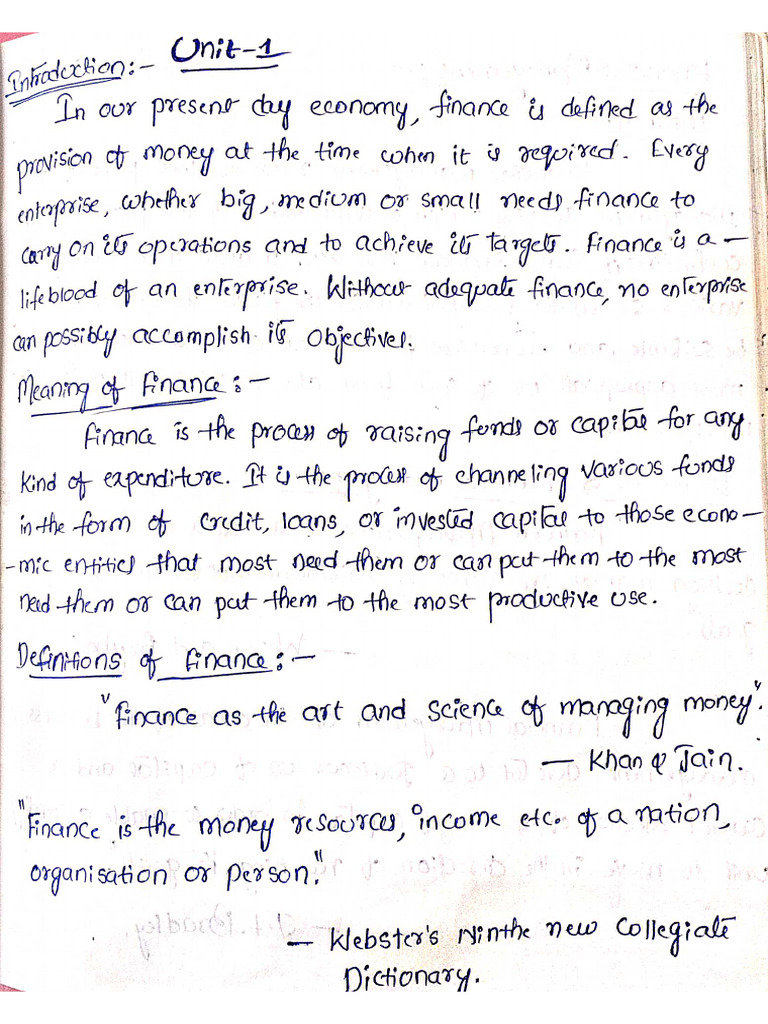 Unit-1
Introduction:-
In our present day economy, finance is defined as the
provision of money at the time when it is required. Every
enterprise, whether big, medium or small needs finance to
carry on its operations and to achieve its targets. Finance is a -
lifeblood of an enterprise. Without adequate finance, no enterprise
can possibly accomplish its objectives.
Meaning of Finance:-
Finance is the process of raising funds or capital for any
kind of expenditure. It is the process of channeling various funds
in the form of credit, loans, or invested capital to those econo-
-mic entities that most need them or can put them to the most
need them or can put them to the most productive use.
Definitions of Finance:-
"Finance as the art and science of managing money".
- Khan & Jain.
"Finance is the money resources, income etc. of a nation,
organisation or person."
- Webster's Ninthe new Collegiate
Dictionary.